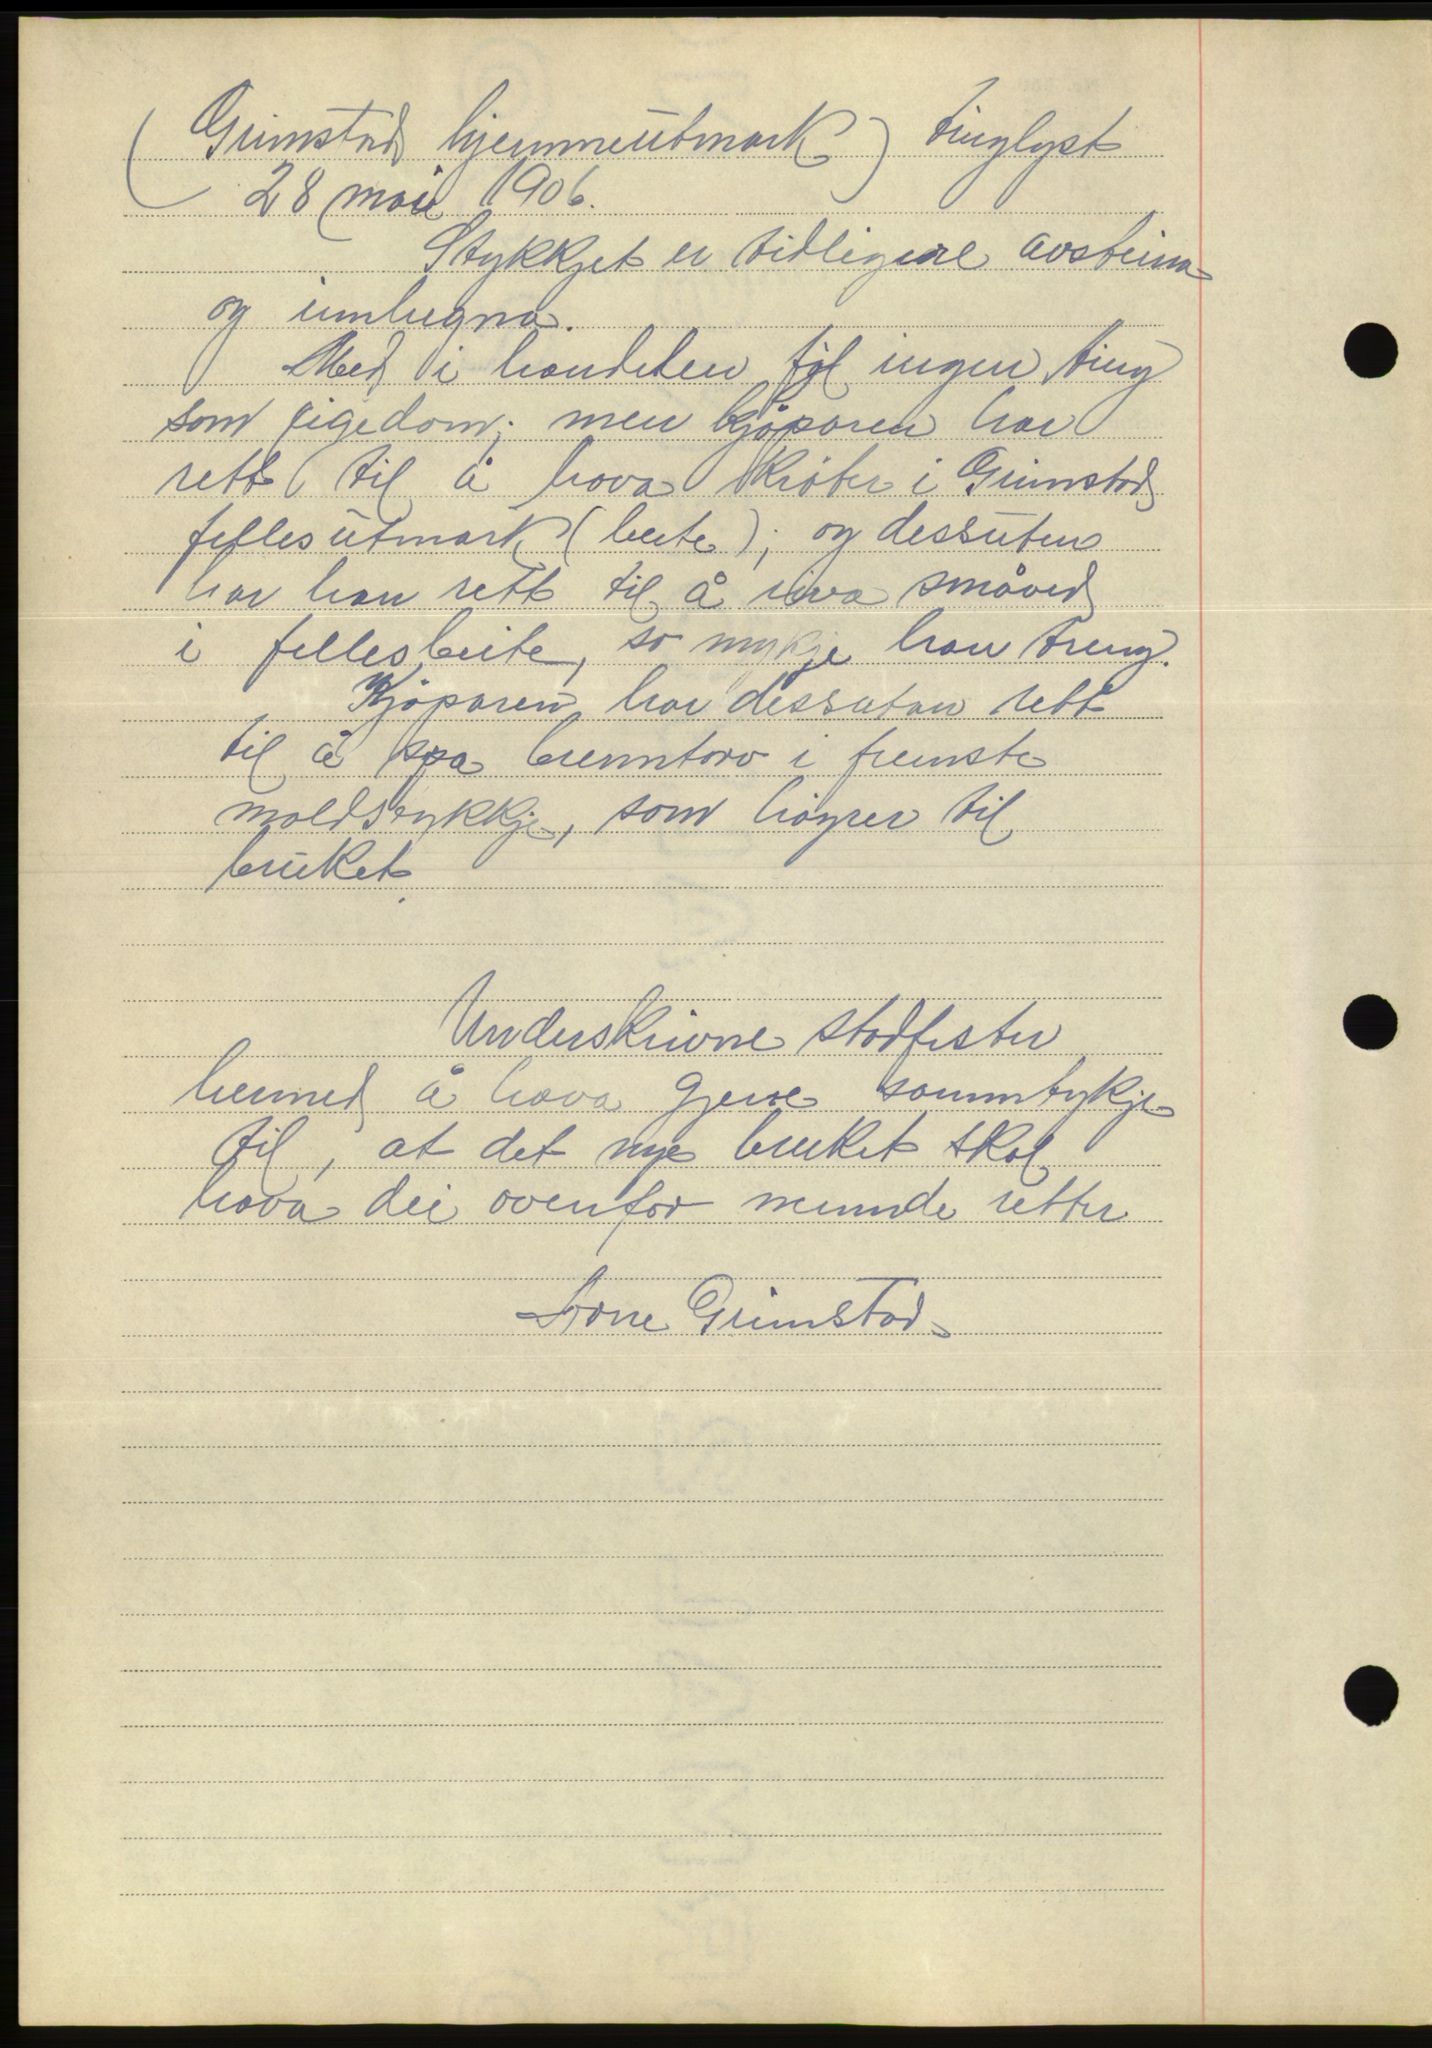 (Grimstads hjemmeutmark) tinglyst
28 mai 1906.
Stykkjet er tidligere avsteina
og innhegna.
Med i handelen föl ingen ting
som eigedom; men kjöparen har
rett til å hava kröter i Grimstad
fellesutmark (beite); og dessuten
har han rett til å riva småved
i fellesbeite, so mykje han treng.
Kjöparen har dessutan rett
til å spa brenntorv i fremste
moldstykkje, som höyrer til
bruket.
Underskrivne stadfester
hermed å hava gjeve samntykje
til, at det nye bruket skal
hava dei ovenfor nemnde retter
Arne Grimstad